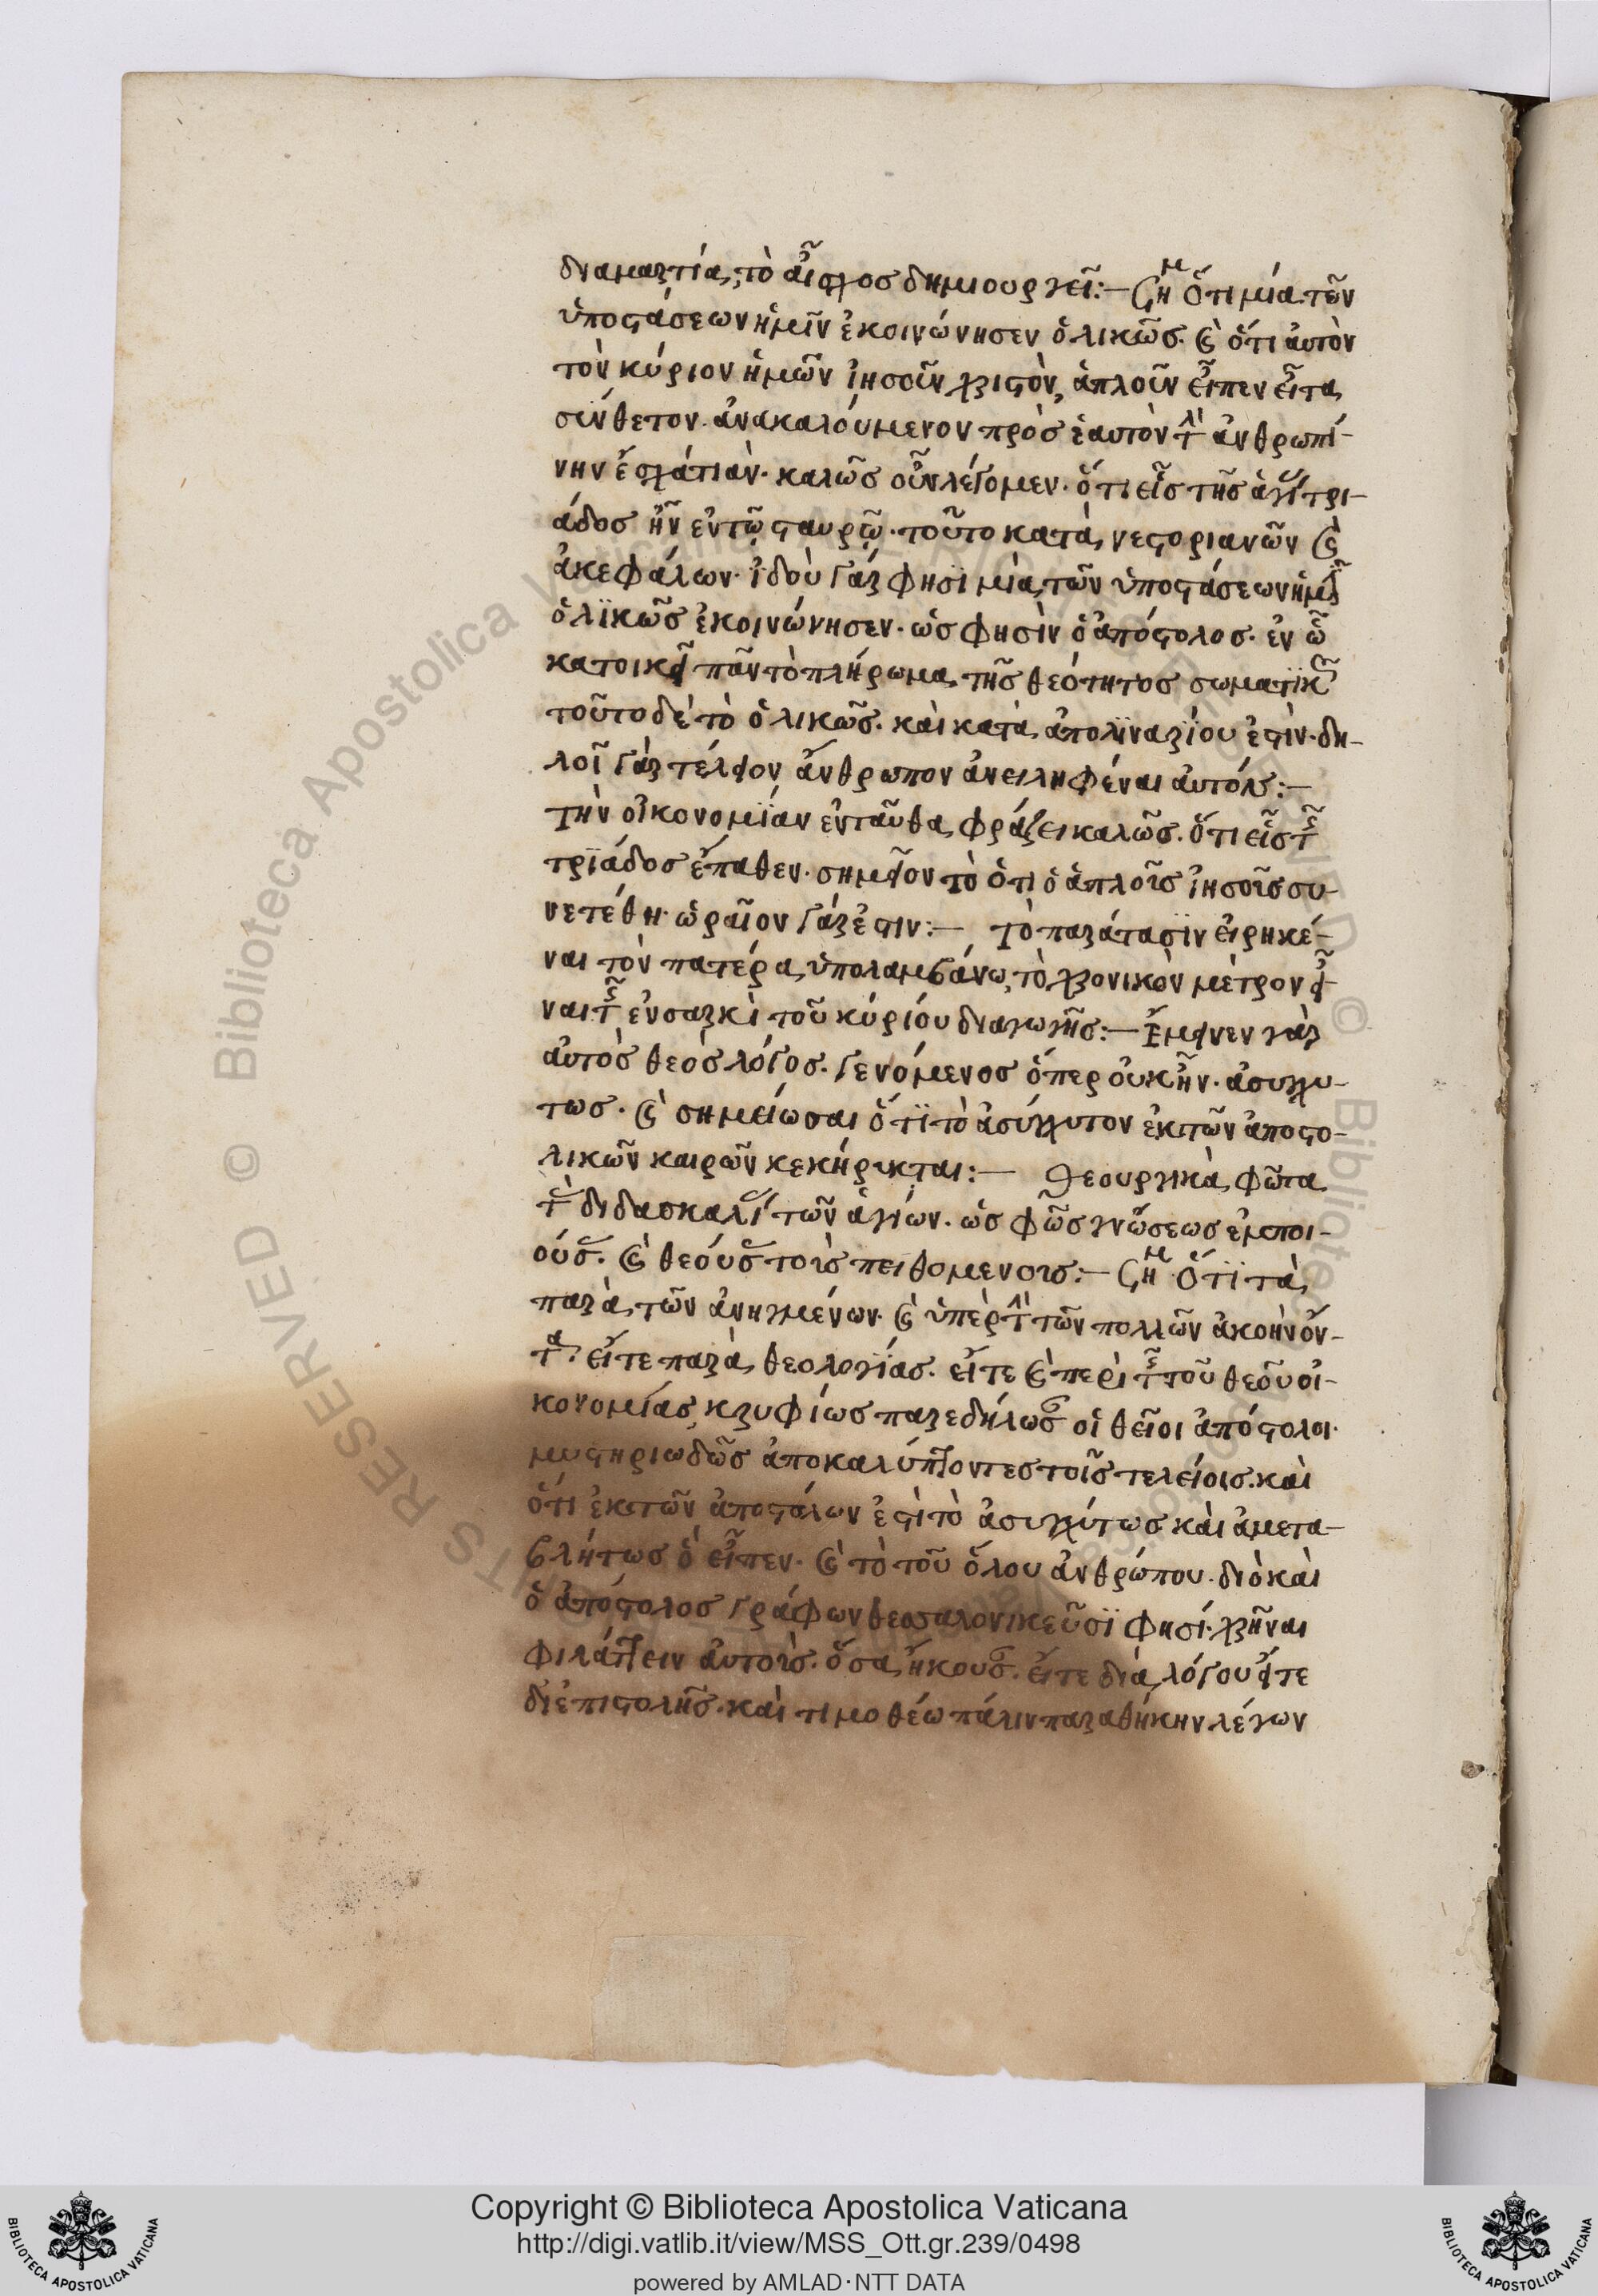 διαμαρτία, τὸ αἶσχος δημιουργεῖ:— Ση^μ Ὅτι μία τῶν
ὑποστάσεων ἡμῖν ἐκοινώνησεν ὁλικῶς. καὶ ὅτι αὐτὸν
τὸν κύριον ἡμῶν ἰησοῦν χριστὸν, ἁπλοῦν εἶπεν εἶτα
σύνθετον. ἀνακαλούμενον πρὸς ἑαυτὸν τὴν ἀνθρωπί-
νην ἐσχάτιαν. καλῶς οὖν λέγομεν. ὅτι εἷς τῆς ἁγίας τρι-
άδος ἦν ἐν τῷ σταυρῷ. τοῦτο κατὰ νεστοριανῶν καὶ
ἀκεφάλων. ἰδοὺ γάρ φησϊ μία τῶν ὑποστάσεων ἡμῖν
ὁλϊκῶς ἐκοινώνησεν. ὡς φησὶν ὁ ἀπόστολος. ἐν ᾧ
κατοικεῖ πᾶν τὸ πλήρωμα τῆς θεότητος σωματϊκῶς
τοῦτο δὲ τὸ ὁλικῶς. καὶ κατὰ ἀπολϊναρϊου ἐστὶν. δη-
λοῖ γὰρ τέλειον ἄνθρωπον ἀνειληφέναι αὐτόν:—
Τὴν οἰκονομϊαν ἐνταῦθα φράζει καλῶς. ὅτι εἷς τῆς
τρϊάδος ἔπαθεν. σημεῖον τὸ ὅτι ὁ ἁπλοῦς ἰησοῦς συ-
νετέθη. ὡραῖον γάρ ἐστιν:— Τὸ παράτασϊν εἰρηκέ-
ναι τὸν πατέρα, ὑπολαμβάνω, τὸ χρονικὸν μέτρον εἶ-
ναι τῆς ἐν σαρκὶ τοῦ κύριου διαγωγῆς:— Ἔμεινεν γὰρ
αὐτὸς θεὸς λόγος. γενόμενος ὅπερ οὐκ ἦν. ἀσυγχυ-
τως. καὶ σημείωσαι ὅτϊ τὸ ἀσύγχυτον ἐκ τῶν ἀποστο-
λικῶν καιρῶν κεκήρυκται:— Θεουργικὰ φῶτα
τὰς διδασκαλίας τῶν ἁγίων. ὡς φῶς γνώσεως ἐμποι-
ούσας. καὶ θεοὺς τοὺς πειθομένους:— Ση^μ Ὅτϊ τὰ
παρὰ τῶν ἀνηγμένων. καὶ ὑπὲρ τὴν τῶν πολλῶν ἀκοὴν ὄν-
τα. εἴτε παρὰ θεολογϊας. εἴτε καὶ περὶ τῆς τοῦ θεοῦ οἰ-
κονομίας κρυφίως παρεδήλωσαν οἱ θεῖοι ἀπόστολοι.
μυστηριωδῶς ἀποκαλύπτοντες τοῖς τελείοις. καὶ
ὅτι ἐκ τῶν ἀποστόλων ἐστὶ τὸ ἀσυγχύτως καὶ ἀμετα-
βλήτως ὃ εἶπεν. καὶ τὸ τοῦ ὅλου ἀνθρώπου. διὸ καὶ
ὁ ἀπόστολος γράφων θεσσαλονικεῦσϊ φησί. χρῆναι
φιλάττειν αὐτοὺς. ὅσα ἤκουσαν. εἴτε διὰ λόγου εἴτε
δι' ἐπιστολῆς. καὶ τιμοθέω πάλιν παραθήκην λέγων
Copyright © Biblioteca Apostolica Vaticana
http://digi.vatlib.it/view/MSS_Ott.gr.239/0498
powered by AMLAD·NTT DATA